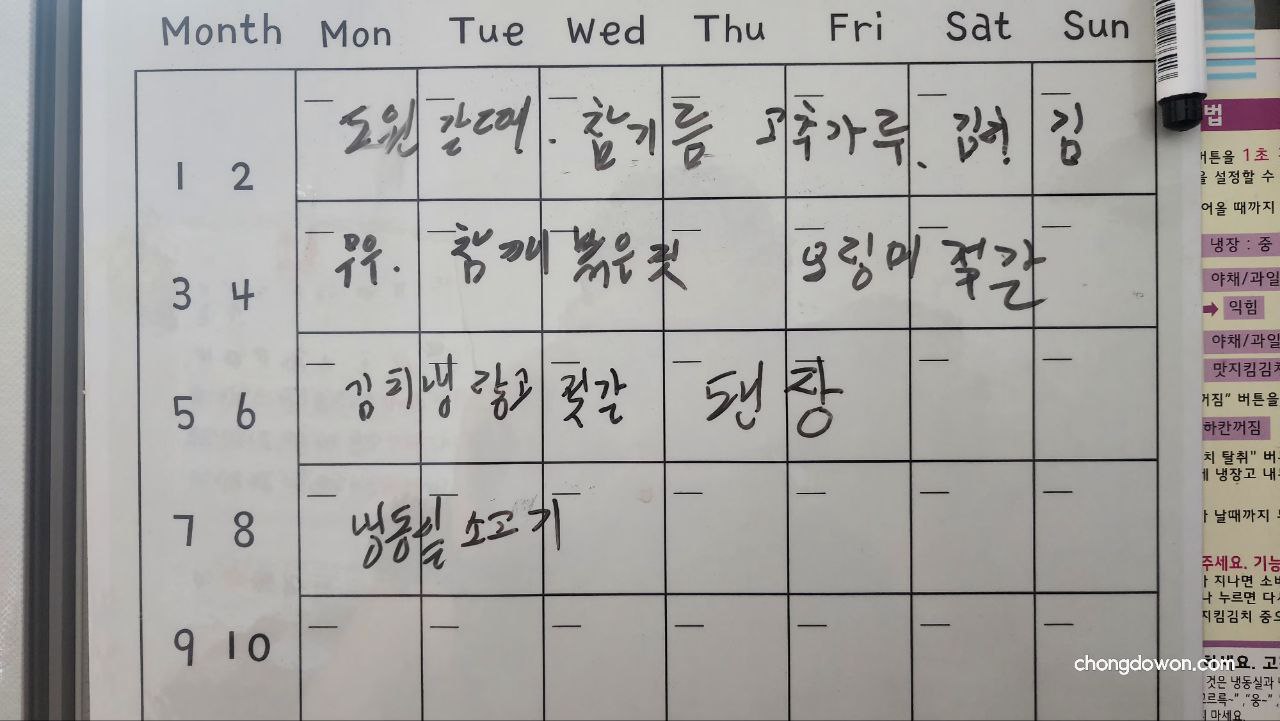 Month Mon Tue Wed Thu Fri Sat Sun
1 2
도원 갈때. 참기름 고추가루. 김치 김
3 4
무우. 참깨 볶은것 오징어 젓갈
5 6
김치냉장고 젓갈 된장
7 8
냉동실 소고기
9 10
법
버튼을 1초
을 설정할 수
어올 때까지
냉장 : 중
야채/과일
익힘
야채/과일
맛지킴김치
꺼짐" 버튼을
하칸꺼짐
치 탈취" 버
에 냉장고 내
날때까지
주세요. 기능
지나면 소비
나 누르면 다시
지킴김치 중
세요. 고
것은 냉동실과
꼬르륵~", "웅~",
지 마세요
chongdowon.com